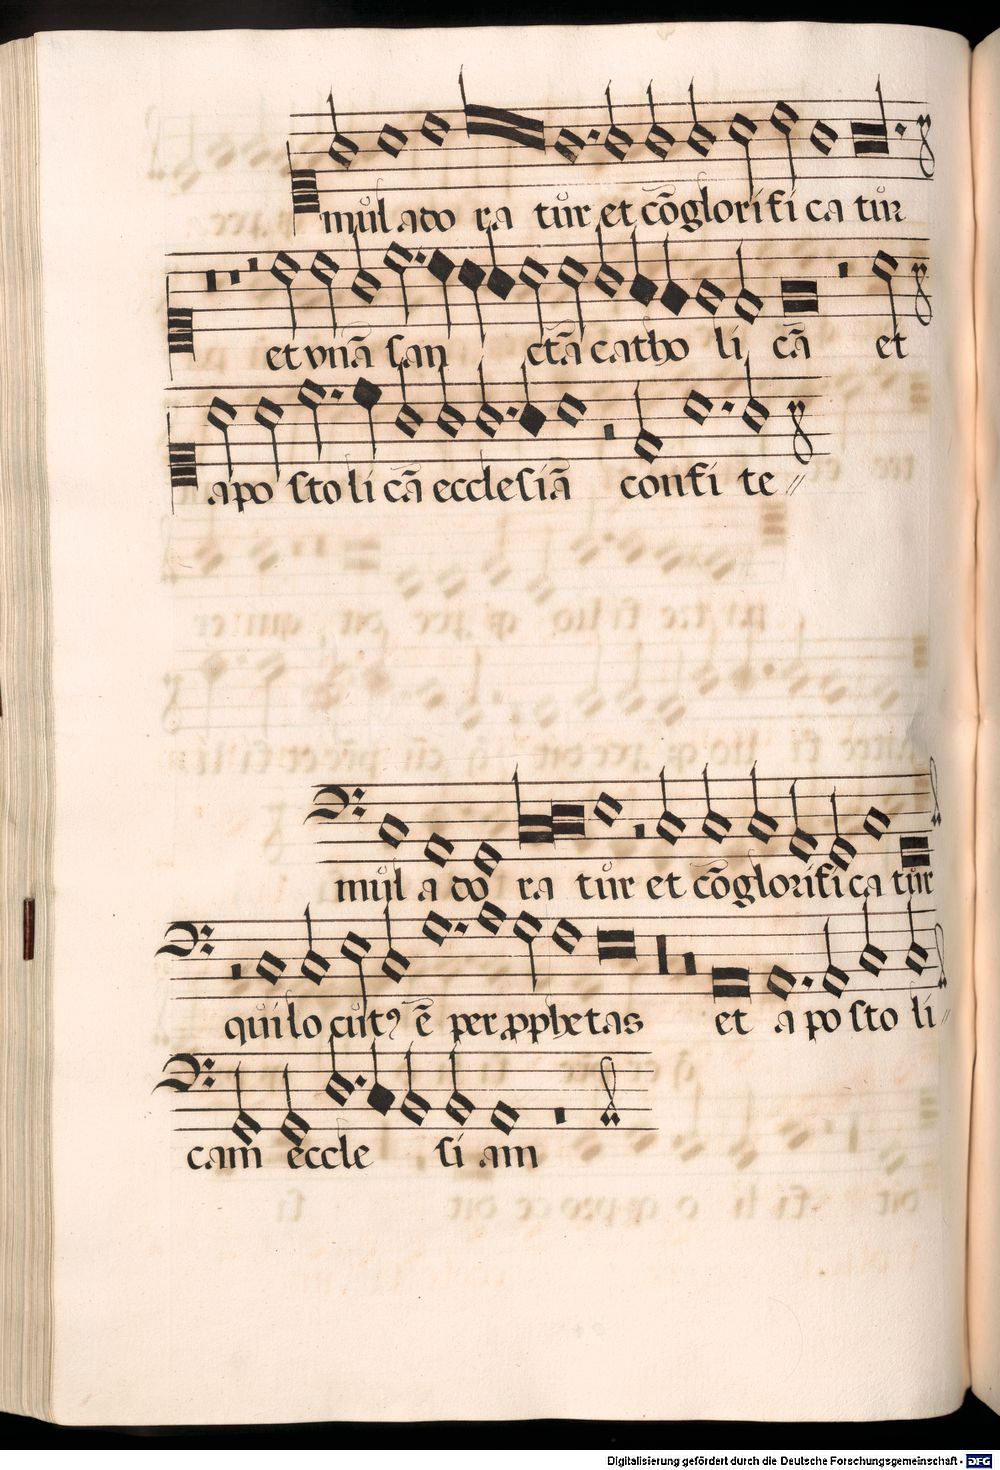 mul ado ra tur et cõglorifi ca tur
et vnã san ctã catho li cã et
apo sto li cã ecclesiã confi te //
mul a do ra tur et cõglorifi ca tur
qui lo cut⁹ ẽ per ꝓphetas et a po sto li //
cam eccle si am
Digitalisierung gefördert durch die Deutsche Forschungsgemeinschaft - DFG